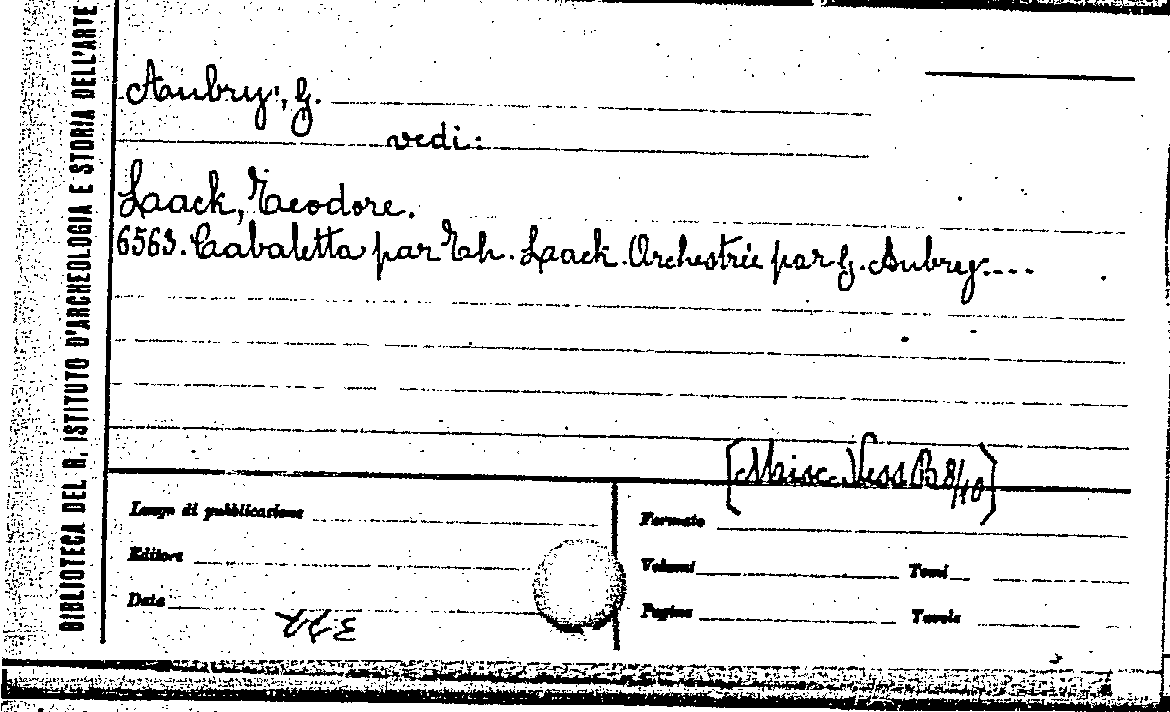 BIBLIOTECA DEL R. ISTITUTO D'ARCHEOLOGIA E STORIA DELL'ARTE
Aubry, G.
vedi:
Laack, Teodore.
6563. Cabaletta par Th. Laack. Orchestrée par G. Aubry....
[Misc. Vess B 8/10]
Luogo di pubblicazione
Formato
Editore
Volumi
Tomi
Data
Pagine
Tavole